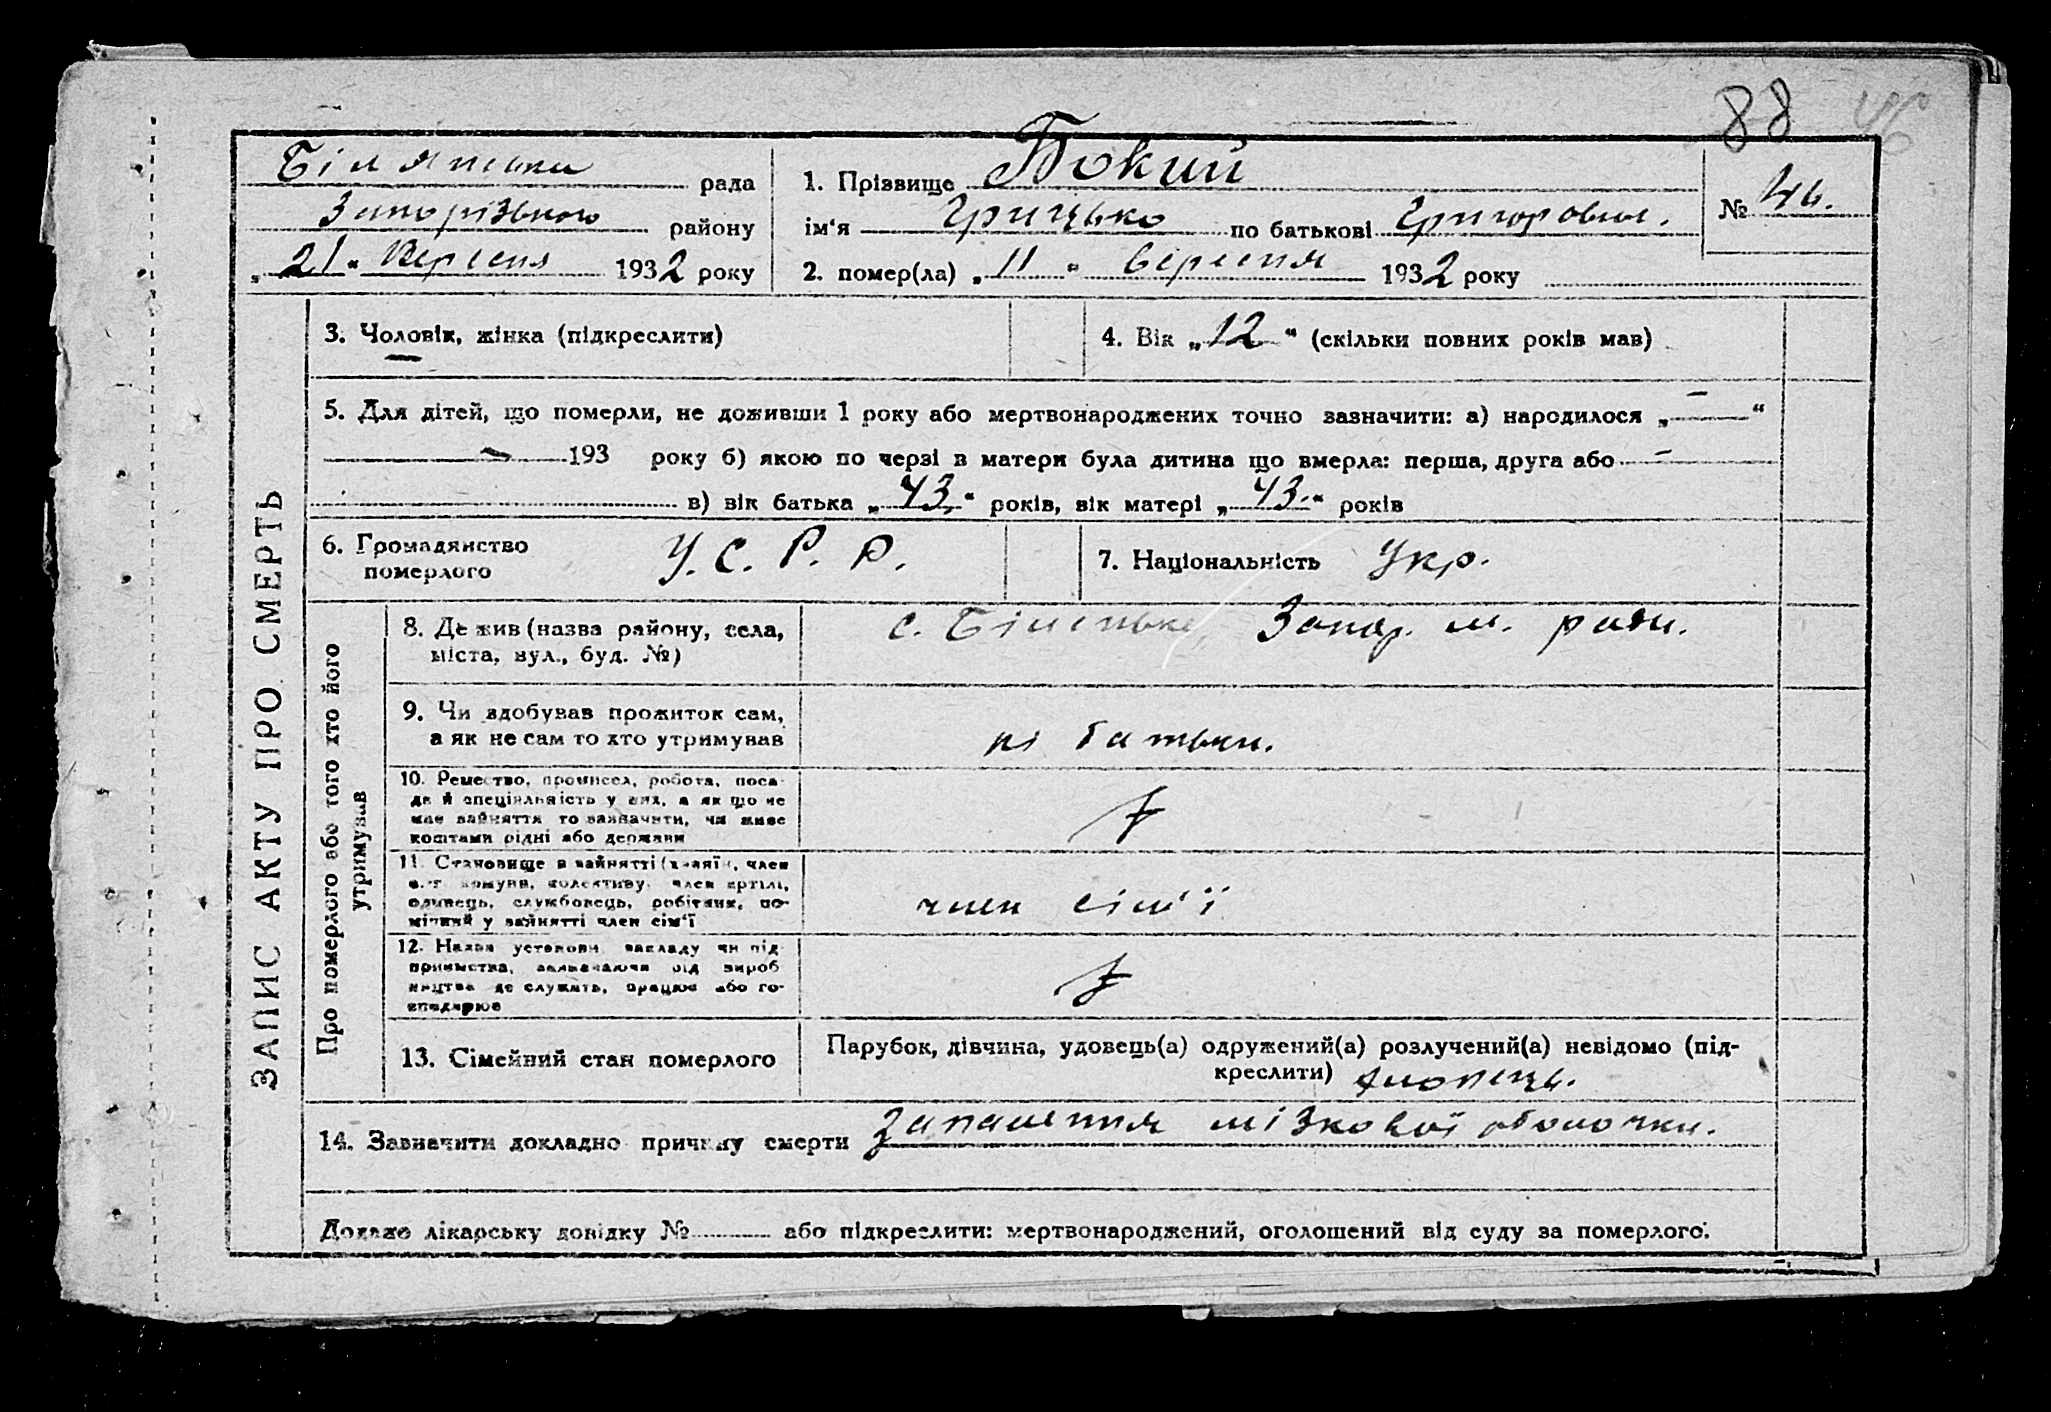 88
Біляпська рада
Запорізького району
„21“ Вересня 1932 року
1. Прізвище Бокий
ім'я Грицько по батькові Григорович.
№ 46.
2. помер(ла) „11“ Вересня 1932 року
ЗАПИС АКТУ ПРО СМЕРТЬ
3. Чоловік, жінка (підкреслити)
4. Вік „12“ (скільки повних років мав)
5. Для дітей, що померли, не доживши 1 року або мертвонароджених точно зазначити: а) народилося „—“
— 193 року б) якою по черзі в матери була дитина що вмерла: перша, друга або —
в) вік батька „43“ років, вік матері „43“ років
6. Громадянство
померлого
У. С. Р. Р.
7. Національність Укр.
Про померлого або того хто його
утримував
8. Де жив (назва району, села,
міста, вул., буд. №)
с. Біленьке, Запор. м. ради.
9. Чи здобував прожиток сам,
а як не сам то хто утримував
ні батьки.
10. Ремество, промисел, робота, поса-
да й спеціяльність у них, а як що не
має зайняття то зазначити, чи живе
коштами рідні або держави
11. Становище в зайнятті (хазяїн, член
с.-г. комуни, колективу, член артілі,
одинець, службовець, робітник, по-
мічний у зайнятті член сім'ї
член сім'ї
12. Назва установи, закладу чи під-
приємства, зазначаючи рід вироб-
ництва де служить, працює або го-
сподарює
13. Сімейний стан померлого
Парубок, дівчина, удовець(а) одружений(а) розлучений(а) невідомо (під-
креслити) хлопець.
14. Зазначити докладно причину смерти запалення мізкової оболочки.
Додано лікарську довідку № або підкреслити: мертвонароджений, оголошений від суду за померлого.